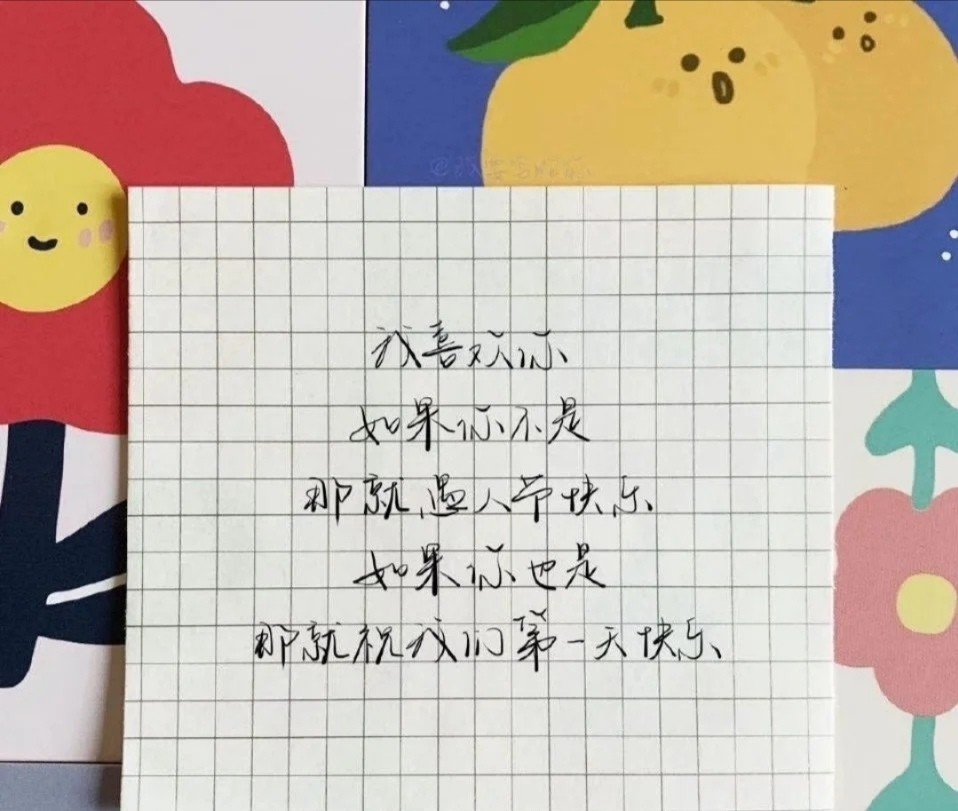 我喜欢你
如果你不是
那就愚人节快乐
如果你也是
那就祝我们第一天快乐